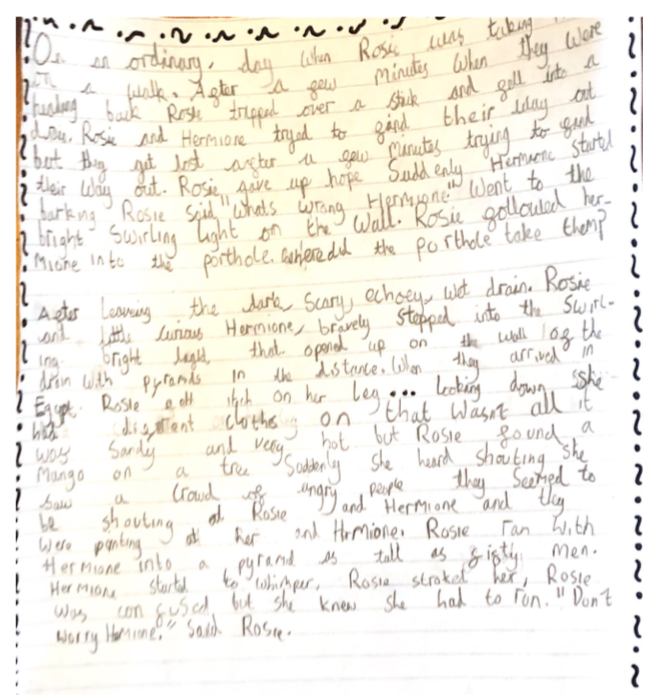 On an ordinary, day when Rosie was taking
on a walk. After a few minutes when they were
heading back Rosie tripped over a stick and fell into a
drain. Rosie and Hermione tryed to find their way out
but they got lost after a few minutes trying to find
their way out. Rosie gave up hope Suddenly Hermione started
barking Rosie said "whats wrong Hermione" Went to the
bright swirling light on the wall. Rosie followed her-
mione into the porthole. where did the porthole take them?
After leaveing the dark, scary, echoey, wet drain. Rosie
and little curious Hermione, bravely stepped into the swirl-
ing bright light that opened up on the wall of the
drain with pyramids in the distance. When they arrived in
Egypt. Rosie felt itch on her leg... looking down she
had diffrent clothes on that wasn't all it
was sandy and very hot but Rosie found a
Mango on a tree Suddenly she heard shouting she
saw a crowd of angry people they seemed to
be shouting at Rosie and Hermione and they
were ponting at her and Hermione. Rosie ran with
Hermione into a pyramid as tall as fifty men.
Hermione started to whimper, Rosie stroked her, Rosie
was confused but she knew she had to run. "Don't
worry Hermione." Said Rosie.